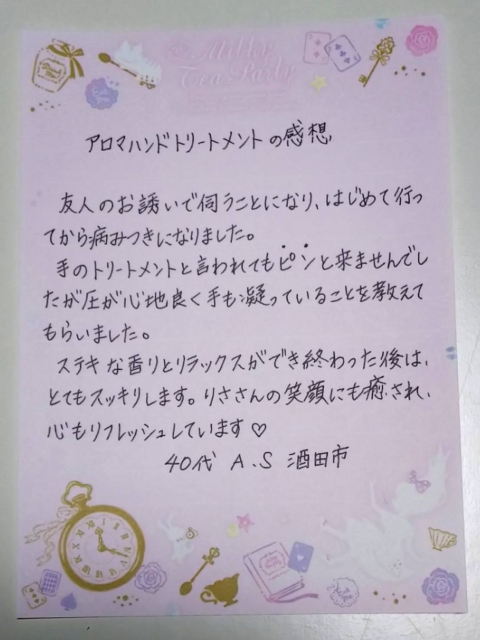 Milky
Tea Party
アロマハンドトリートメントの感想
友人のお誘いで伺うことになり、はじめて行っ
てから病みつきになりました。
手のトリートメントと言われてもピンと来ませんでし
たが圧が心地良く手も凝っていることを教えて
もらいました。
ステキな香りとリラックスができ終わった後は、
とてもスッキリします。りささんの笑顔にも癒され、
心もリフレッシュしています♡
40代 A.S 酒田市